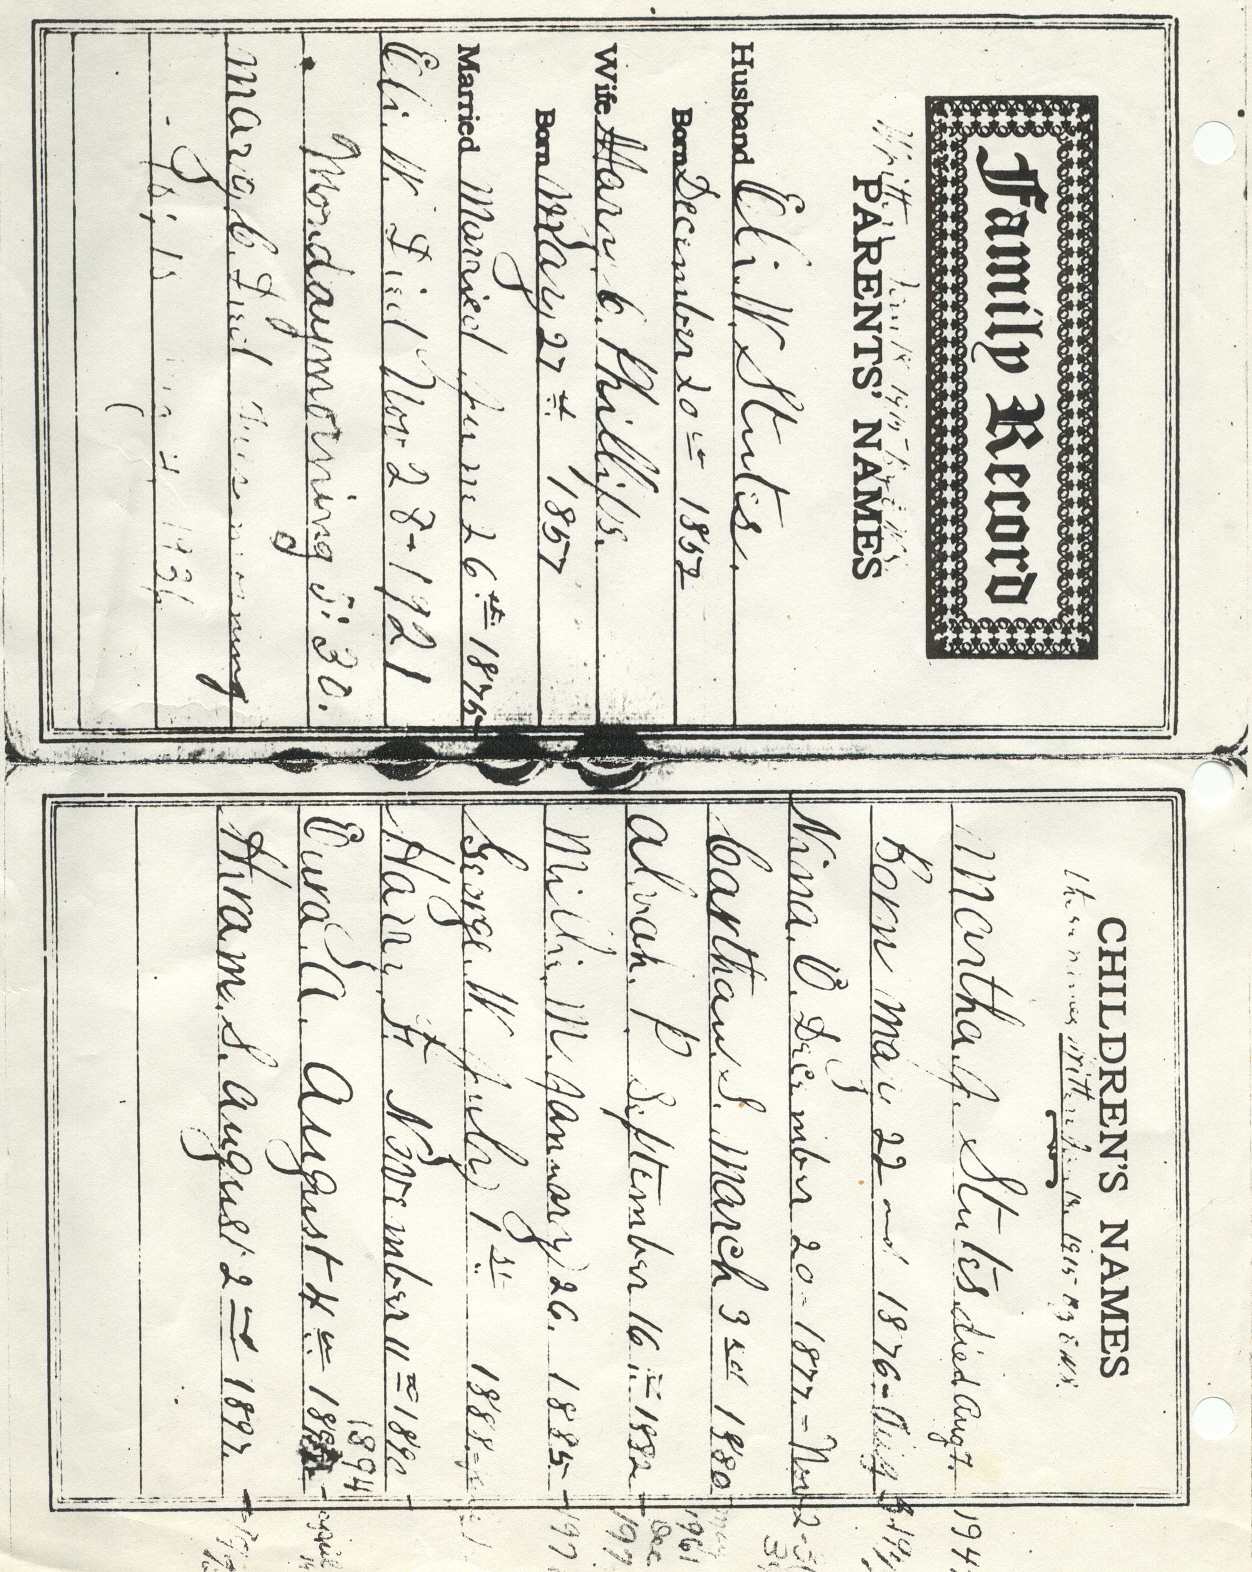 Family Record
PARENTS' NAMES
Husband Eli. W. Stutes.
Born December 20th 1852
Wife Mary. C. Phillips.
Born May 27th. 1857
Married Married June 26th 1875
Eli. W. Died Nov 28-1921
Monday morning 5:30.
Mary C. Died morning
CHILDREN'S NAMES
these names Written 1915 By E.W.S.
Martha. J. Stutes died Aug 7. 194
Born May 22nd 1876-
Nina. O. December 20-1877.- Nov 2-
Cartha. S. March 3rd 1880
1961
Alvah. P. September 16th-1882- Dec
Millie. M. January 26. 1885-
George. W. July 1st 1888-
Harry. F. November 11th-189
1894
Eura. A. August 4th- - April
Hiram. S. August 2nd 1897.